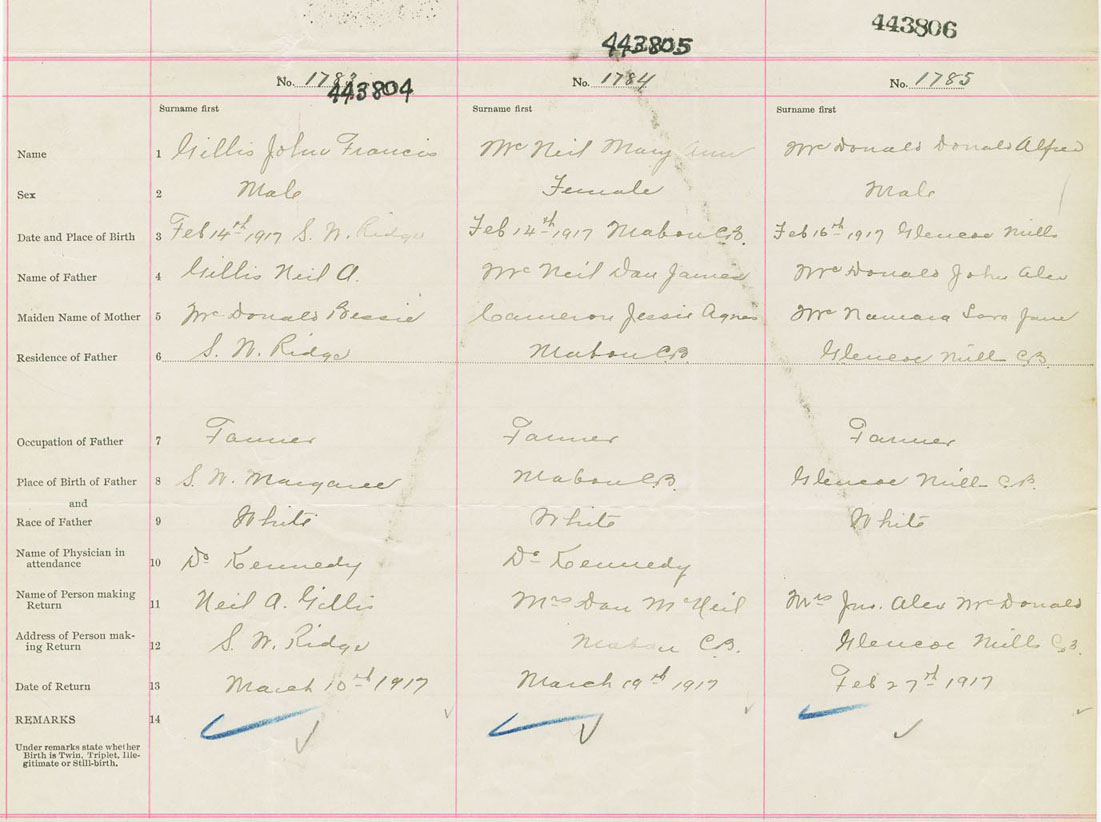 443806
443805
No. 1783 No. 1784 No. 1785
443804
Surname first Surname first Surname first
Name 1 Gillis John Francis Mc Neil Mary Ann Mc Donald Donald Alfred
Sex 2 Male Female Male
Date and Place of Birth 3 Feb 14th 1917 S. W. Ridge Feb 14th 1917 Mabou C.B. Feb 16th 1917 Glencoe Mills
Name of Father 4 Gillis Neil A. Mc Neil Dan James Mc Donald John Alex
Maiden Name of Mother 5 Mc Donald Bessie Cameron Jessie Agnes Mc Namara Sara Jane
Residence of Father 6 S. W. Ridge Mabou C.B. Glencoe Mills C.B.
Occupation of Father 7 Farmer Farmer Farmer
Place of Birth of Father 8 S. W. Margaree Mabou C.B. Glencoe Mills C.B.
and
Race of Father 9 White White White
Name of Physician in
attendance 10 Dr Kennedy Dr Kennedy
Name of Person making
Return 11 Neil A. Gillis Mrs Dan McNeil Mrs Jno. Alex McDonald
Address of Person mak-
ing Return 12 S. W. Ridge Mabou C.B. Glencoe Mills C.B.
Date of Return 13 March 10th 1917 March 19th 1917 Feb 27th 1917
REMARKS 14
Under remarks state whether
Birth is Twin, Triplet, Ille-
gitimate or Still-birth.